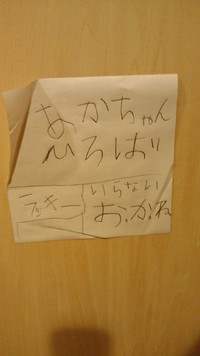 あかちゃん
ひろば
ラッキー
いらない
おかね